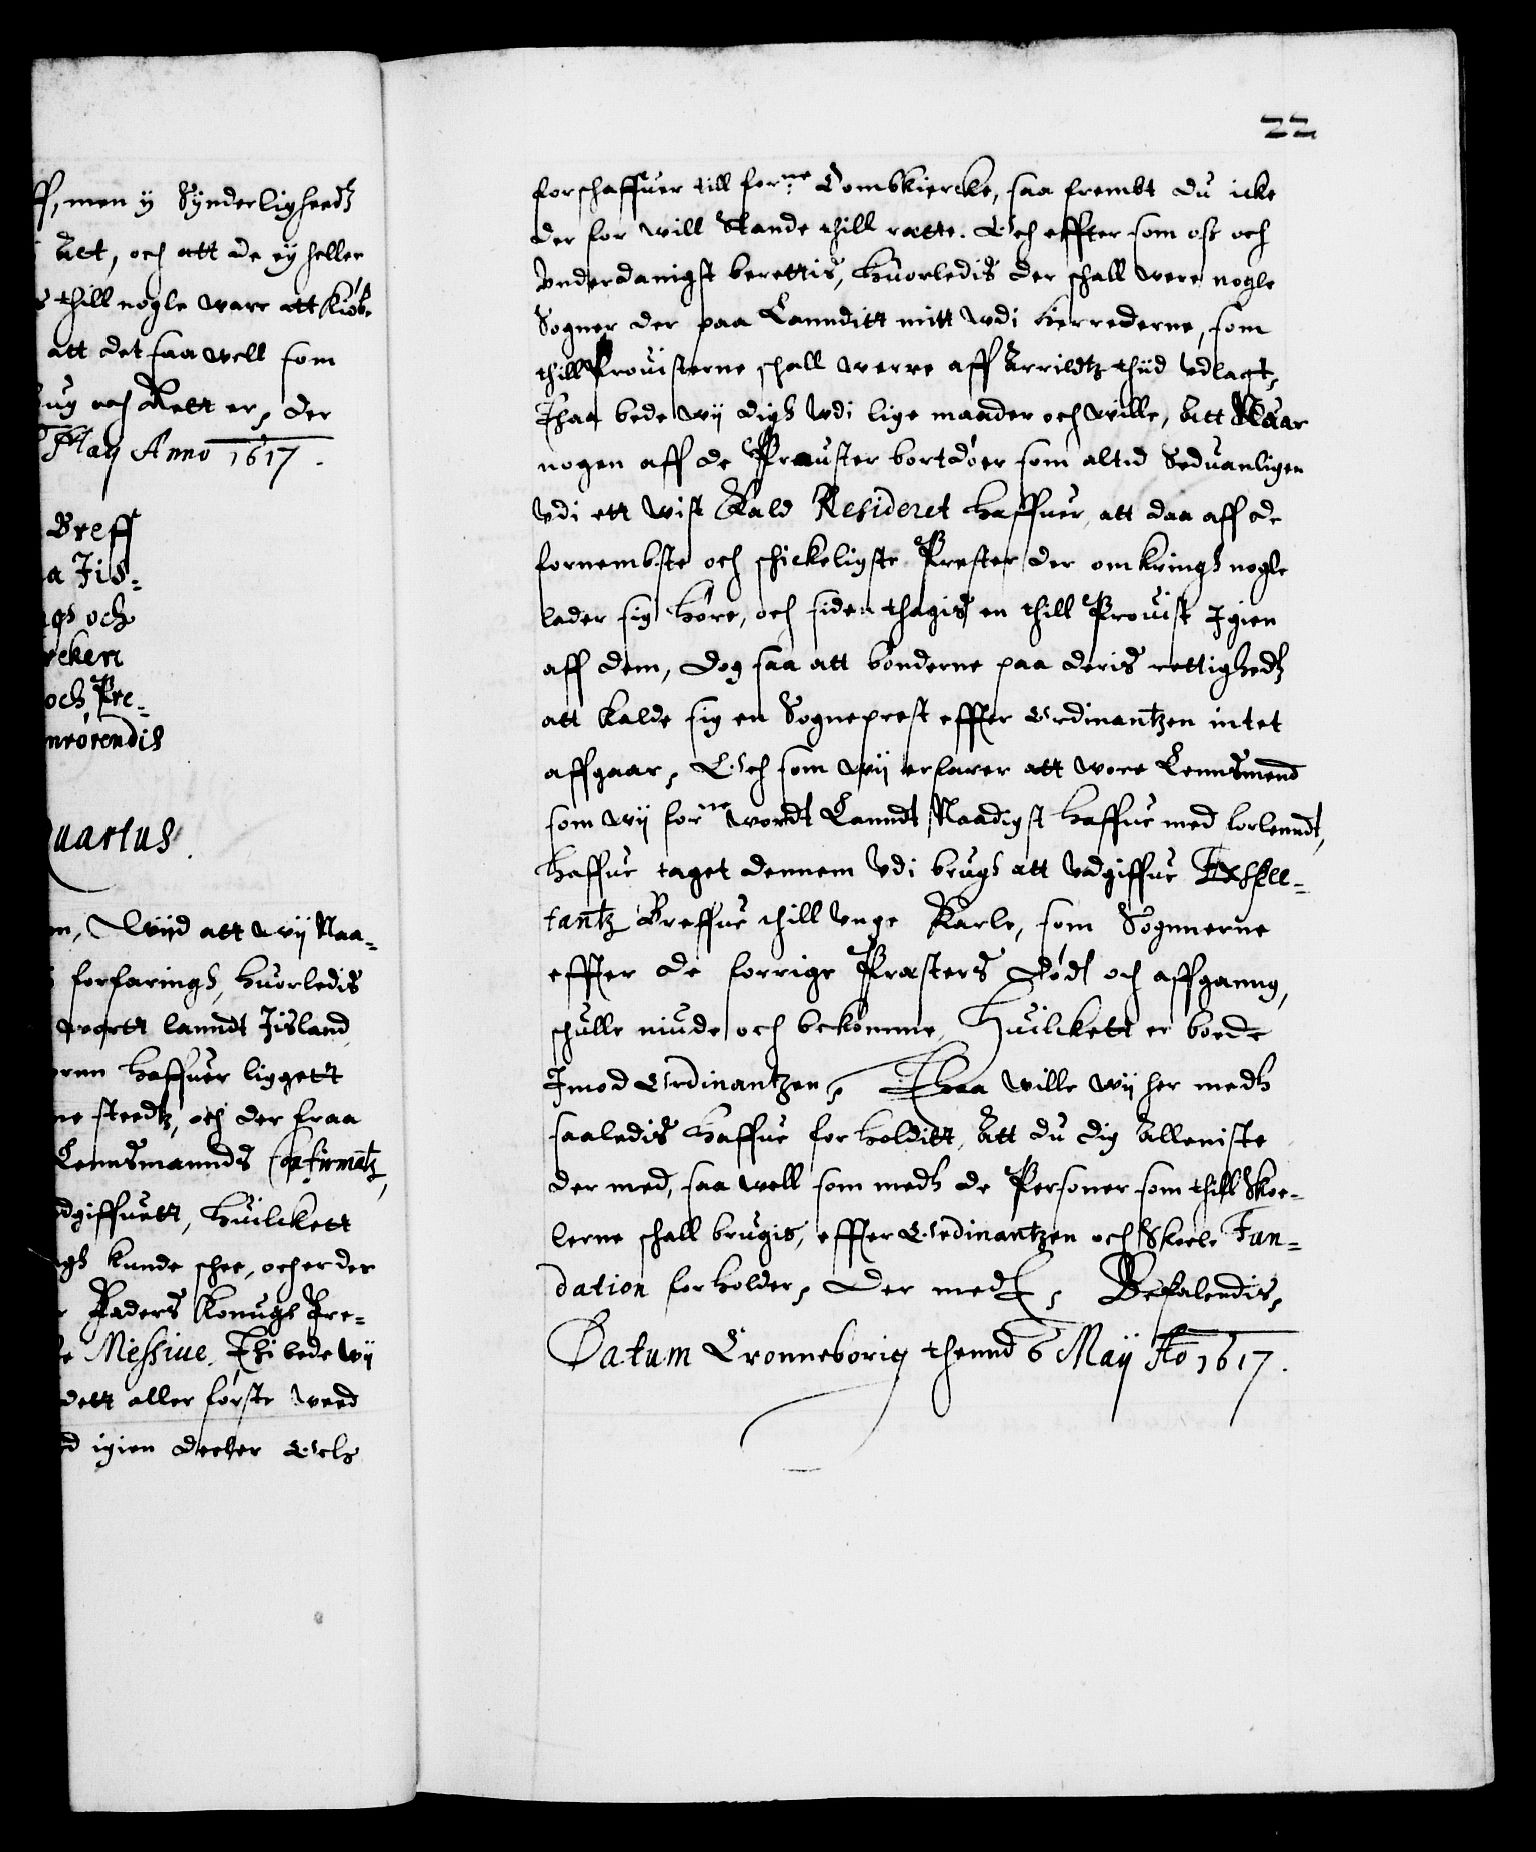 ff, men ÿ Sÿnderligheedtz
Act, och att de eÿ heller
thill nogle warr att kiöbe
att det saa well som
och Rett er, der
May Anno 1617.
Breff
a Jis-
och
och Pre-
uartus.
Wiid att wij Naa-
forfaringh, huorledis
wortt lanndt Jisland
haffuer liggett
steedtz, och der fraa
Lennsmannds Confirmatz
dgiffuett, huilckett
kunde schee, och er der
Faders Konngs Bre-
Messiue. Thi bede wij
dett aller første med
igien Och
22
forschaffuer till forne Domkiercke, saa frembt du icke
der for will Stande thill rætte. Och effter som oss och
Vnderdanigst berettis, huorledis der schall were nogle
Sogner der paa Lannditt mitt wdi herrederne, som
thill Prouisterne schall werre aff Arrildtz thiid vdlagt,
Thaa bede wij digh wdi lige maader och wille, Att Naar
nogen aff de Prouster bortdöer som altid Seduanligen
Vdi ett wist Kald Resideret haffuer, att daa aff de
fornembste och schickeligste Prester der omkringh nogle
lader sig höre, och siden thagis en thill Prouist Igien
aff dem, dog saa att bönderne paa deris rettighedtz
att kalde sig en Sogneprest effter Ordinantzen intet
affgaar, Och som wij erfarer att wore Lennsmend
som wij forne wordt Lanndt Naadigst haffue med forlenndt,
haffue taget dennem Vdi brugh att vdgiffue Exspec-
tantz Breffue thill Vnge Karle, som Sognnerne
effter de forrige Præsters död och affganng,
schulle niude och bekomme, Huilckett er bode
Imod Ordinantzen, Thaa wille wij her medtz
saaledis haffue forholditt, Att du dig Alleniste
der med, saa well som medtz de Personer som thill Skoe-
lerne schall brugis, effter Ordinantzen och Skoele Fun-
dation forholder, Der medt, Befalendis,
Datum Cronneborig thennd 6 Maij Ao 1617.